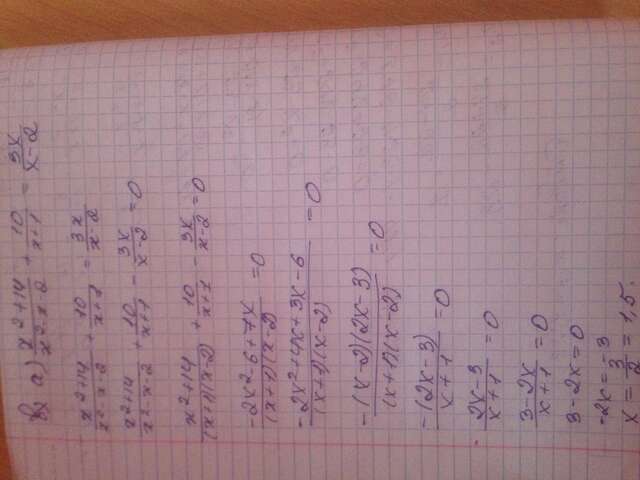 в2 a) x²+14/x²-x-2 + 10/x+1 = 3x/x-2
x²+14/x²-x-2 + 10/x+1 = 3x/x-2
x²+14/x²-x-2 + 10/x+1 - 3x/x-2 = 0
x²+14/(x+1)(x-2) + 10/x+1 - 3x/x-2 = 0
-2x²-6+7x/(x+1)(x-2) = 0
-2x²+4x+3x-6/(x+1)(x-2) = 0
-(x-2)(2x-3)/(x+1)(x-2) = 0
-(2x-3)/x+1 = 0
2x-3/x+1 = 0
3-2x/x+1 = 0
3-2x=0
-2x=-3
x = 3/2 = 1,5.